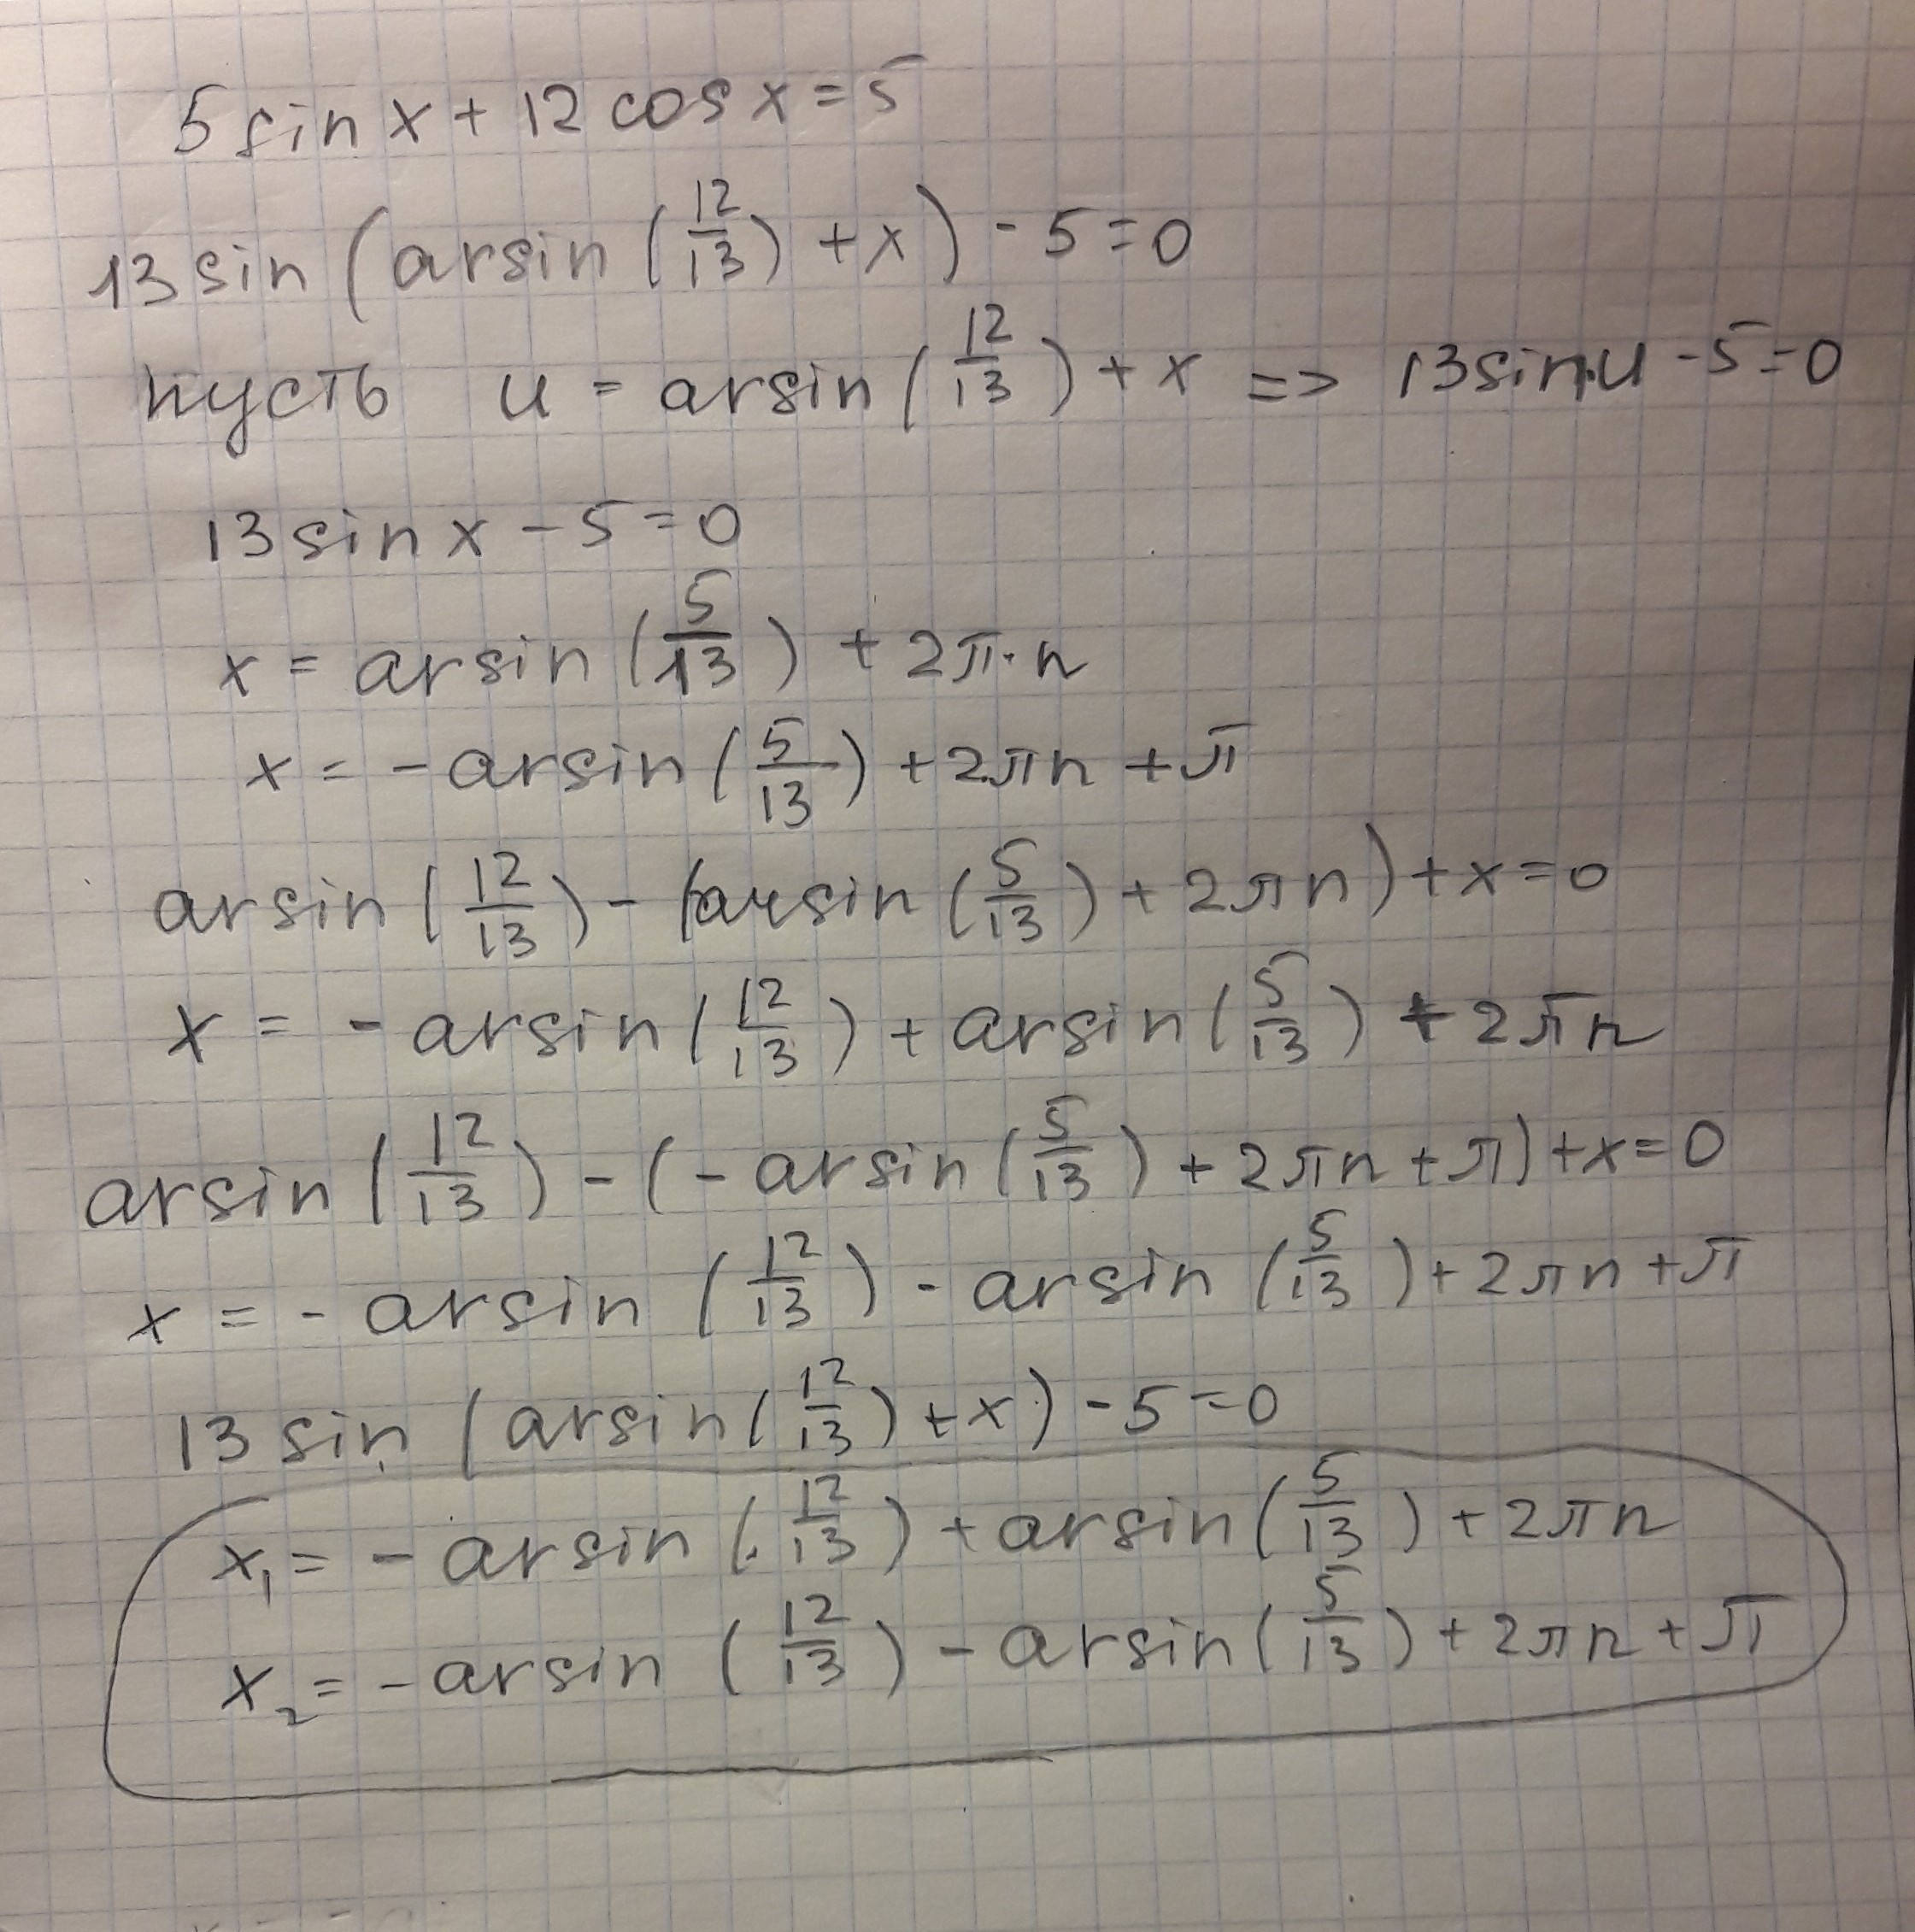 5 sin x + 12 cos x = 5
13 sin (arsin (12/13) + x) - 5 = 0
пусть u = arsin (12/13) + x => 13 sin u - 5 = 0
13 sin x - 5 = 0
x = arsin (5/13) + 2π·n
x = - arsin (5/13) + 2πn + π
arsin (12/13) - (arsin (5/13) + 2πn) + x = 0
x = - arsin (12/13) + arsin (5/13) + 2πn
arsin (12/13) - (- arsin (5/13) + 2πn + π) + x = 0
x = - arsin (12/13) - arsin (5/13) + 2πn + π
13 sin (arsin (12/13) + x) - 5 = 0
x₁ = - arsin (12/13) + arsin (5/13) + 2πn
x₂ = - arsin (12/13) - arsin (5/13) + 2πn + π